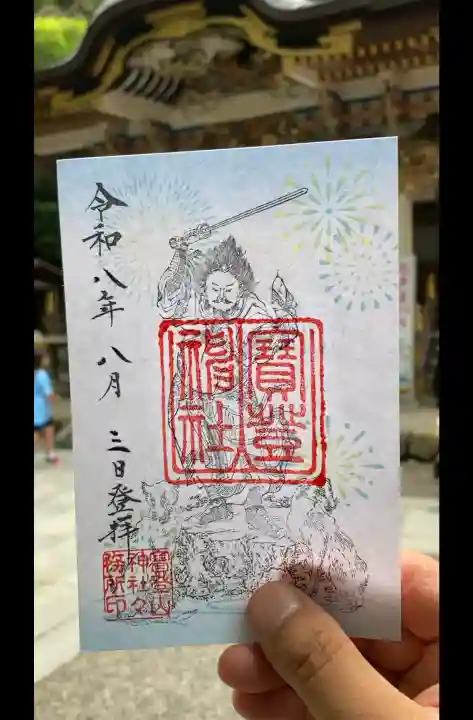 令和八年 八月 三日登拝
寶登
神社
寶登山
神社々
務所印